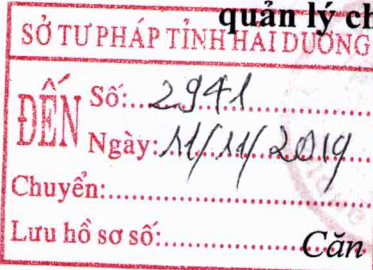 quản lý ch
SỞ TƯ PHÁP TỈNH HẢI DƯƠNG
ĐẾN
Số: 2941
Ngày: 11/11/2019
Chuyển:
Lưu hồ sơ số:
Căn